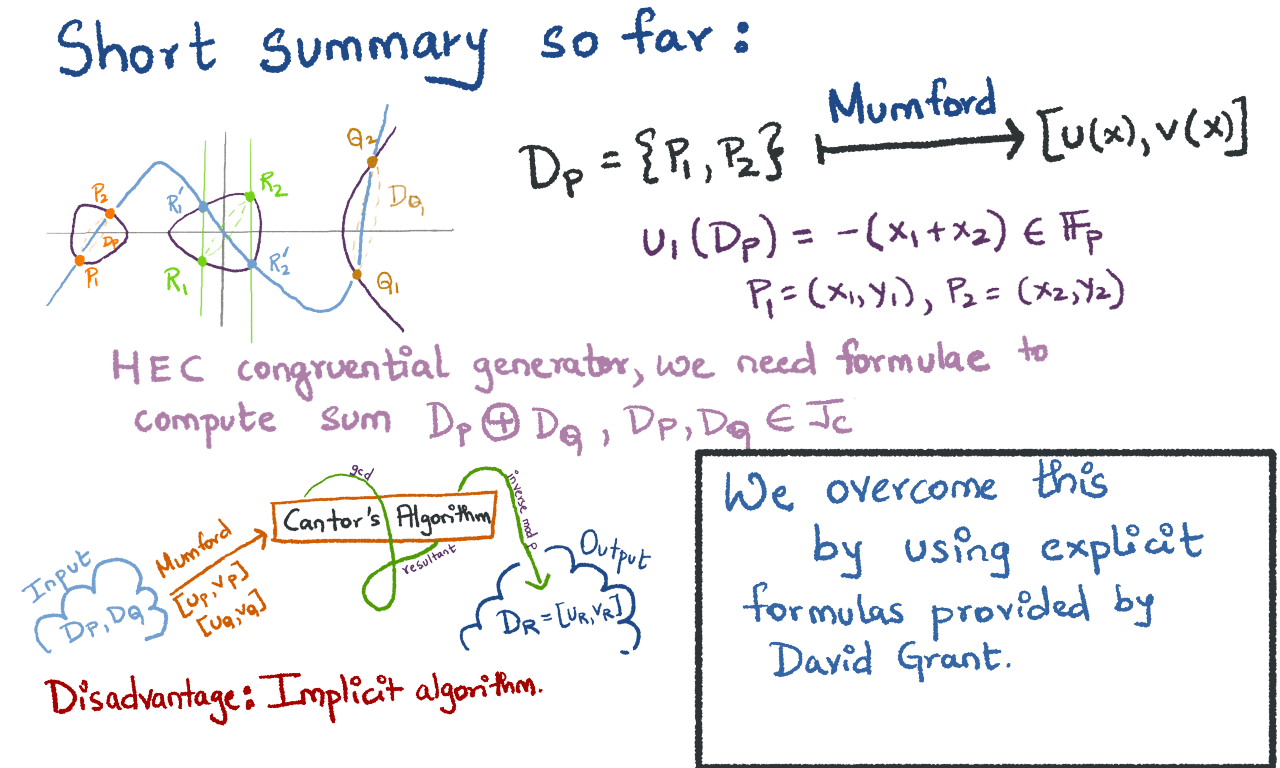 Short summary so far:
P₂
Dₚ
P₁
R₁'
R₂
R₁
R₂'
Q₂
D_Q₁
Q₁
Dₚ = {P₁, P₂}
Mumford
[u(x), v(x)]
u₁(Dₚ) = -(x₁+x₂) ∈ 𝔽ₚ
P₁ = (x₁, y₁), P₂ = (x₂, y₂)
HEC congruential generator, we need formulae to
compute sum Dₚ ⊕ D_Q, Dₚ, D_Q ∈ J_C
Input
Dₚ, D_Q
Mumford
[uₚ, vₚ]
[u_Q, v_Q]
gcd
Cantor's Algorithm
resultant
inverse mod p
Output
D_R = [u_R, v_R]
Disadvantage: Implicit algorithm.
We overcome this
by using explicit
formulas provided by
David Grant.